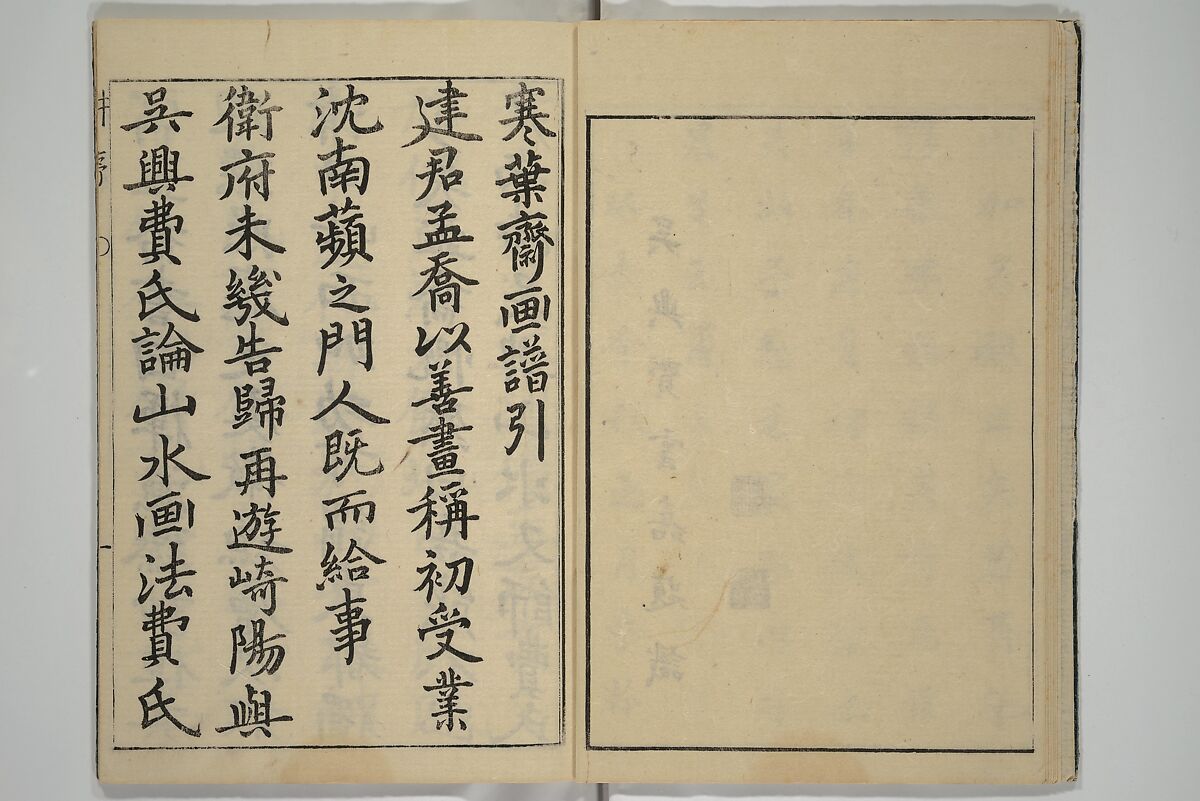 寒葉齋画譜引
建君孟喬以善畫稱初受業
沈南蘋之門人既而給事
衛府未幾告歸再遊崎陽與
吳興費氏論山水画法費氏
序 〇 一